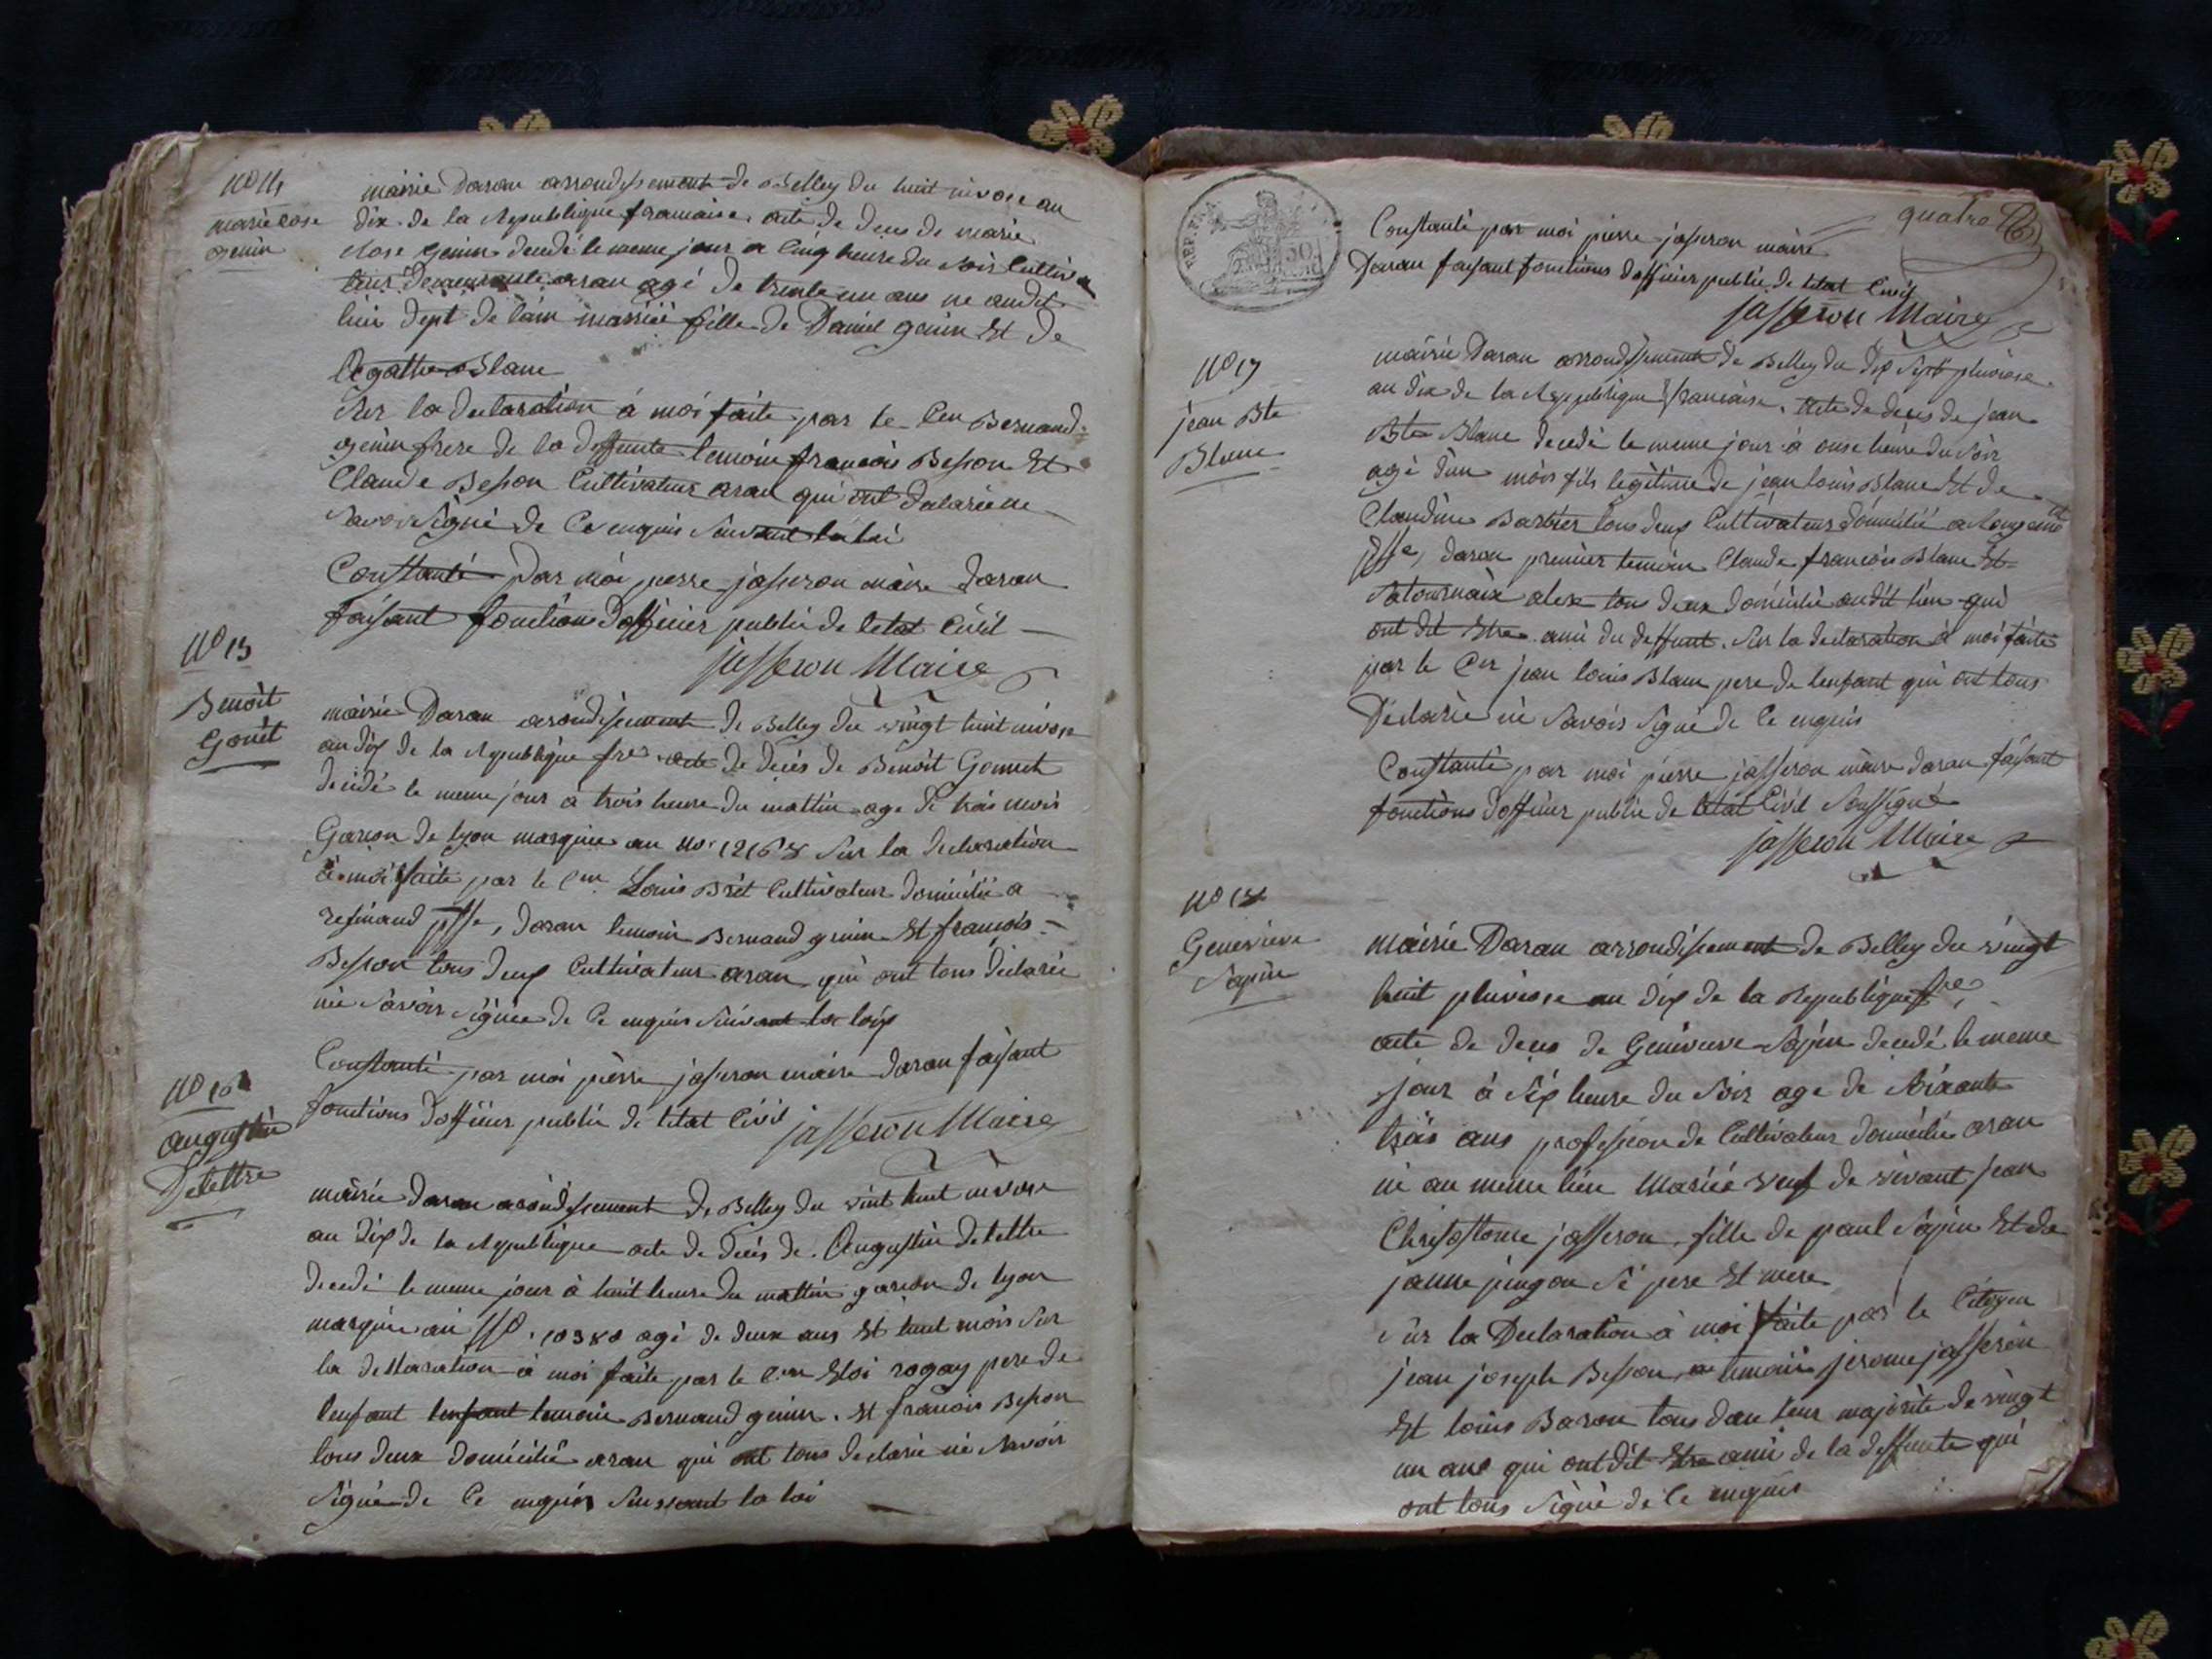 No 14
marie rose
genin
mairie Daran arrondissement de Belley du huit nivose an
dix de la Republique francaise, acte de deces de marie
Rose genin decedé le meme jour a cinq heure du soir Cultiva
teur demeurante aran agé de trente un ans ne audit
lieu dept de lain mariée fille de Daniel genin Et de
agathe Blanc
Sur la declaration à moi faite par le Cen Bernard
genin frere de la deffunte temoin francois Besson Et
Claude Besson Cultivateur aran qui ont declarée ne
Savoir Signé de Ce enquis Suivant la loi
Constanté Par moi pierre jasseron maire daran
faisant fonctions d'officier public de l'etat Civil
jasseron Maire
No 15
Benoit
Gonet
mairie Daran arondissement de Belley du vingt huit nivose
an dix de la Republique fre acte de deces de Benoit Gonnet
decedé le meme jour à trois heure du mattin age de trois mois
Garcon de lyon marquée au No 12168 Sur la declaration
à moi faite par le Cen Louis Bret Cultivateur domicilié a
resinand psse, daran temoin Bernard genin Et francois
Besson tous deux Cultivateur aran qui ont tous declarée
ne Savoir Signée de Ce enquis Suivant la loix
Constanté par moi pierre jasseron maire daran faisant
fonctions d'officier public de l'etat Civil
jasseron Maire
No 16
augustin
Delettre
mairie daran arondissement de Belley du vint huit nivose
an dix de la Republique acte de deces de Augustin delettre
decedé le meme jour à huit heure du mattin garcon de lyon
marquée au No 10380 agé de deux ans Et huit mois Sur
la dellaration à moi faite par le Cen Eloi rogay pere de
lenfant lenfant temoin Bernard genin Et francois Besson
tous deux domicilié aran qui ont tous declarié ne Savoir
Signé de Ce enquis Suivant la loi
quatre
REP. FRA.
50
Constanté par moi pierre jasseron maire
Daran faisant fonctions d'officier public de l'etat Civil
jasseron Maire
No 17
jean Bte
Blanc
mairie Daran arrondissement de Belley du dix Sept pluviose
an dix de la Republique francaise, acte de deces de jean
Bte Blanc decedé le meme jour à onse heure du Soir
agé d'un mois fils legitime de jean louis Blanc Et de
Claudine Barbier tous deux Cultivateur domicilié a
psse, daran premier temoin Claude francois Blanc Et
alex tous deux domicilié audit lieu qui
ont dit Etre ami du deffunt. Sur la declaration à moi faite
par le Cen jean louis Blanc pere de lenfant qui ont tous
Declarée ne Savoir Signé de Ce enquis
Constanté par moi pierre jasseron maire daran faisant
fonctions d'officier public de l'etat Civil Soussigné
jasseron Maire
No 18
Genevieve
Sapin
mairie Daran arrondissement de Belley du vingt
huit pluviose an dix de la Republique fre,
acte de deces de Genevieve Sapin decedé le meme
jour à Six heure du Soir age de Soixante
trois ans profession de Cultivateur domicilié aran
né au meme lieu Mariée veuf de vivant jean
Christostome jasseron, fille de paul Sapin Et de
janne pingon Sé pere Et mere
Sur la Declaration à moi faite par le Citoyen
jean joseph Besson, temoin jerome jasseron
Et louis Baron tous dans leur majorité de vingt
un ans qui ont dit Etre ami de la deffunte qui
ont tous Signé de Ce enquis